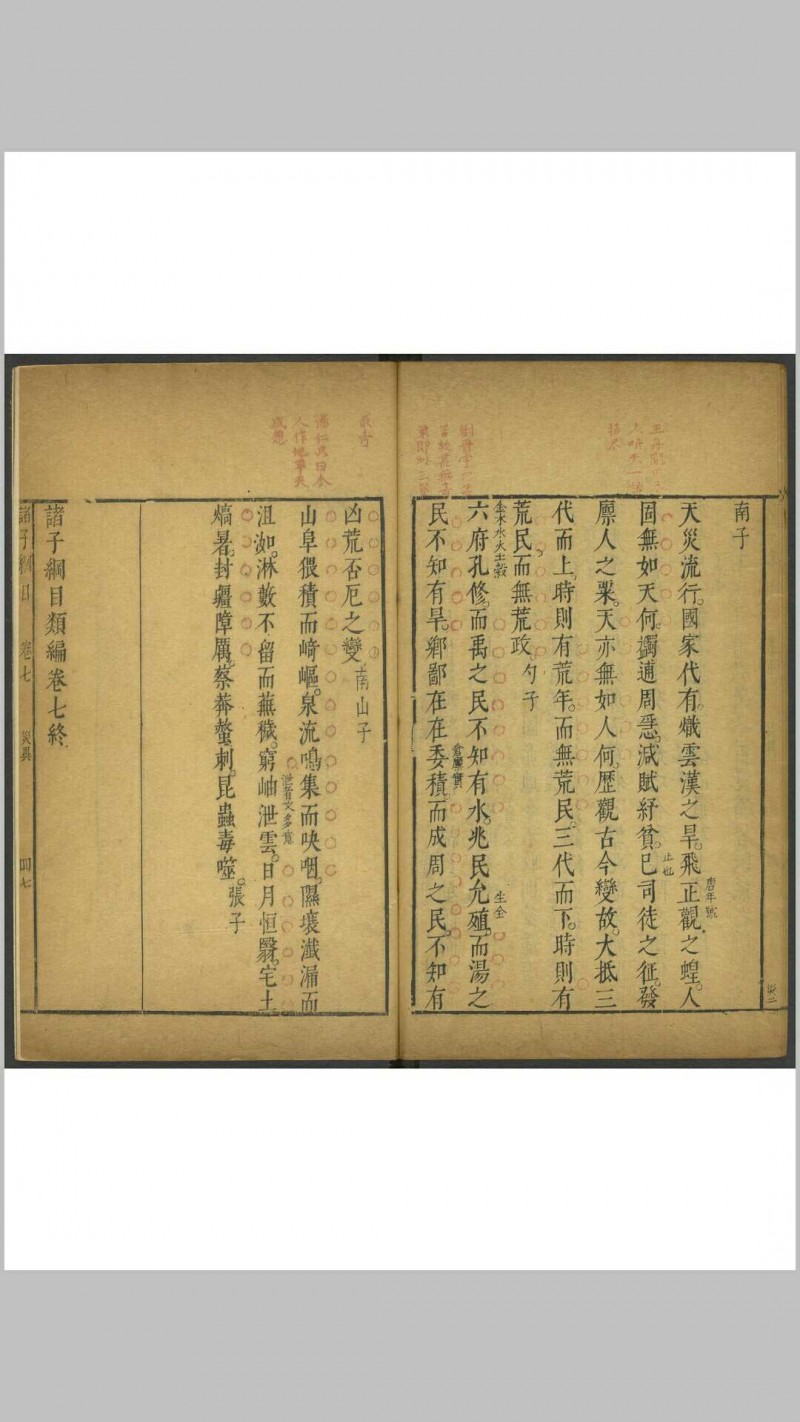 南子
天災流行。國家代有。熾雲漢之旱。飛正觀之蝗。人
唐年號
固無如天何。蠲逋周急。減賦紓貧。已司徒之征。發
止也
廪人之粟。天亦無如人何。歷觀古今變故。大抵三
代而上。時則有荒年。而無荒民。三代而下。時則有
荒民。而無荒政 勺子
金木水火土穀
六府孔修。而禹之民不知有水。兆民允殖。而湯之
生全
民不知有旱。鄉鄙在在委積。而成周之民。不知有
倉廩實
凶荒否厄之變 南山子
山阜猥積而崎嶇。泉流鳴集而咉咽。隰壤瀸漏而
沮洳。淋藪不留而蕪穢。窮岫泄雲。日月恒翳。宅土
泄音乂多意
熇暑。封疆障厲。蔡莽螫刺。昆蟲毒噬。 張子
諸子綱目類編卷七終
諸子綱目 卷七 災異 四七